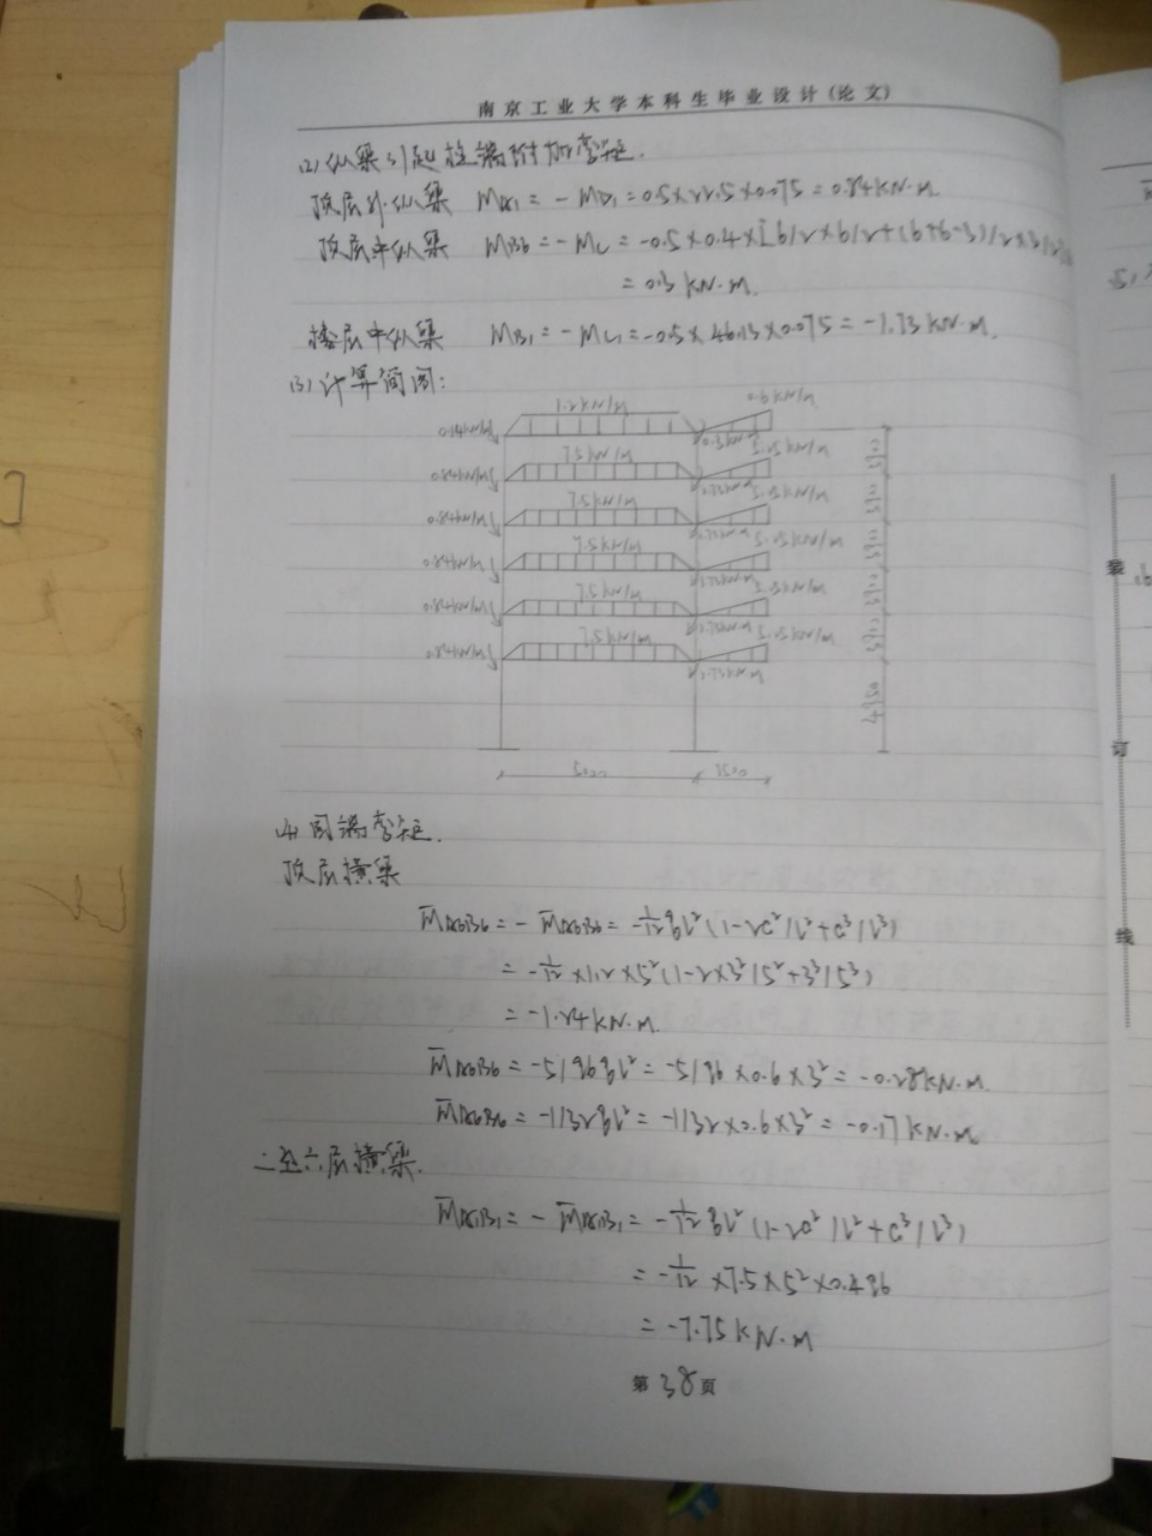 南京工业大学本科生毕业设计(论文)
(2)纵梁引起柱端附加弯矩.
顶层外纵梁 MA1 = -MD1 = 0.5×22.5×0.075 = 0.84kN·m.
顶层中纵梁 MB6 = -MC = -0.5×0.4×[6/2×6/2+(6+6-3)/2×3/2
= 0.3 kN·m.
楼层中纵梁 MB1 = -MC1 = -0.5×46.13×0.075 = -1.73 kN·m.
(3)计算简图:
1.2kN/m 0.6kN/m
0.14kN/m 0.3kN·m
7.5kN/m 5.05kN/m
0.84kN/m 1.73kN·m 3900
7.5kN/m 5.05kN/m
0.84kN/m 1.73kN·m 3900
7.5kN/m 5.05kN/m
0.84kN/m 1.73kN·m 3900
7.5kN/m 5.05kN/m
0.84kN/m 1.73kN·m 3900
7.5kN/m 5.05kN/m
0.84kN/m 1.73kN·m 3900
4950
5000 1500
(4)固端弯矩.
顶层横梁
M̄A6B6 = -M̄A6B6 = -1/12ql²(1-2c²/l²+c³/l³)
= -1/12×1.2×5²(1-2×3²/5²+3³/5³)
= -1.24kN·m.
M̄A6B6 = -5/96ql² = -5/96×0.6×3² = -0.28kN·m.
M̄A6B6 = -1/32ql² = -1/32×0.6×3² = -0.17kN·m
二至六层横梁.
M̄A1B1 = -M̄A1B1 = -1/12ql²(1-2c²/l²+c³/l³)
= -1/12×7.5×5²×0.496
= -7.75kN·m
第38页
装
订
线